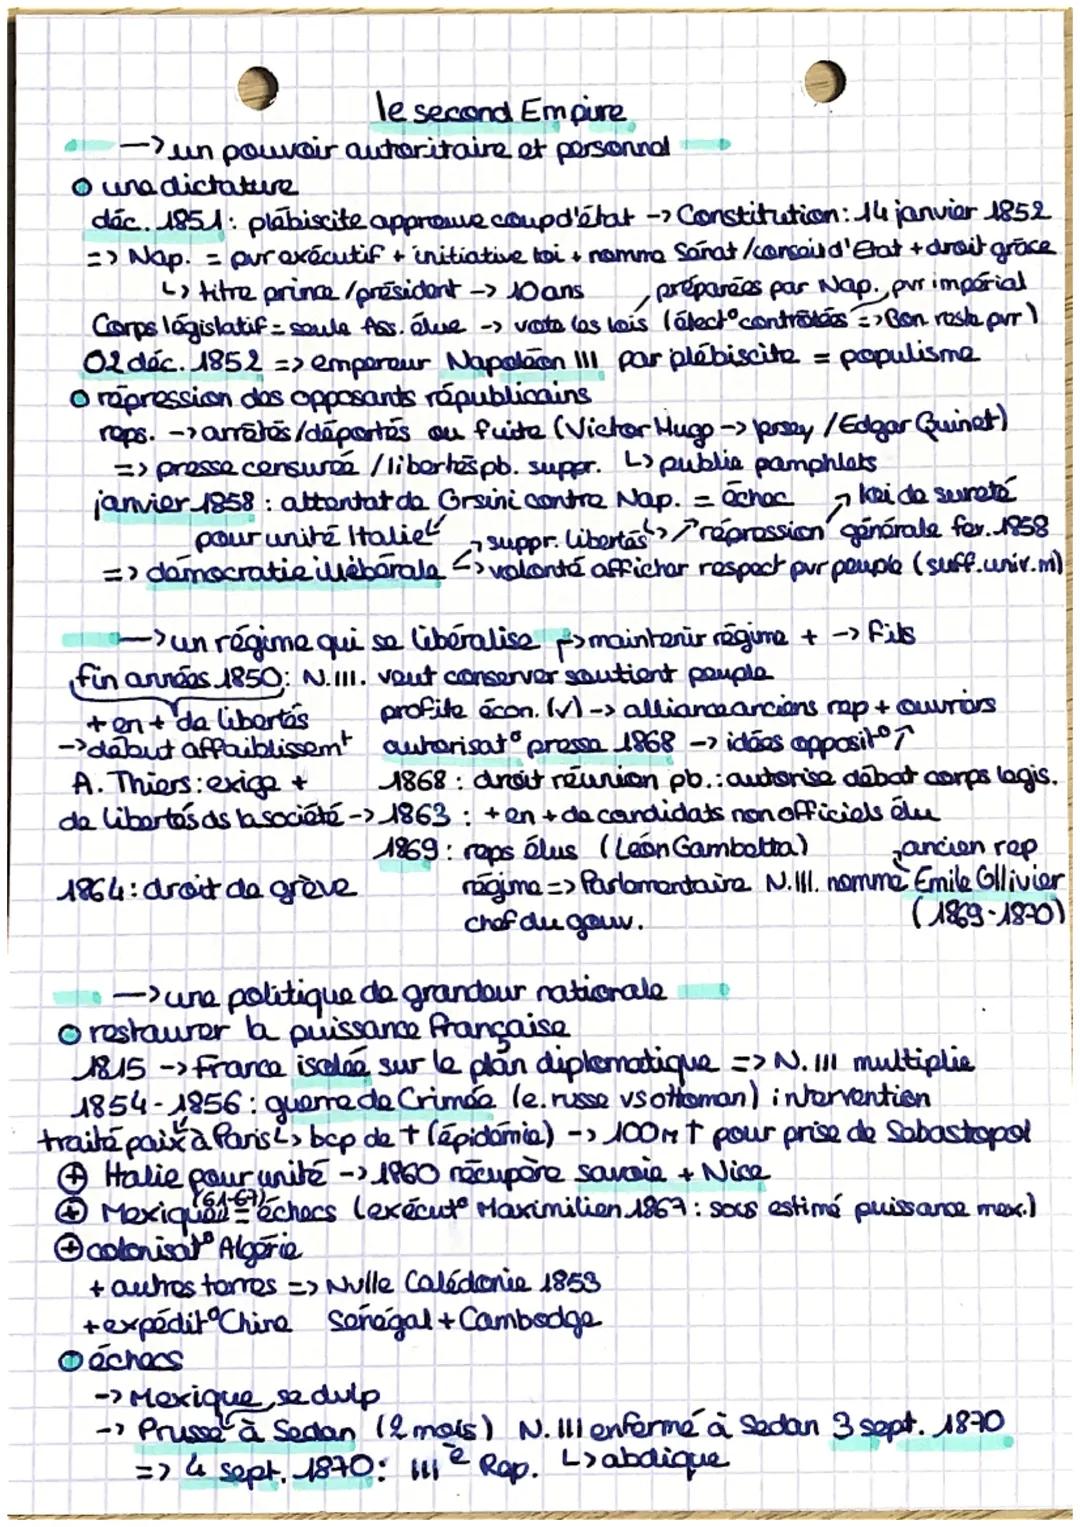 le second Empire
-> un pouvoir autoritaire et personnel
o une dictature
déc. 1851 : plébiscite approuve coup d'état -> Constitution : 14 janvier 1852
=> Nap. = pvr exécutif + initiative loi + nomme Sénat / conseil d'Etat + droit grâce
↳ titre prince / président -> 10 ans
préparées par Nap. pvr impérial
Corps législatif = seule Ass. élue -> vote les lois (élect° contrôlées => Bon reste pvr)
02 déc. 1852 => empereur Napoléon III par plébiscite = populisme
o répression des opposants républicains
reps. -> arrêtés / déportés ou fuite (Victor Hugo -> Jersey / Edgar Quinet)
=> presse censurée / libertés pb. suppr. ↳ publie pamphlets
janvier 1858 : attentat de Orsini contre Nap. = échec -> loi de sureté
pour unité Italie -> suppr. libertés ↳ ↗ répression générale fev. 1858
=> démocratie illébérale <-> volonté afficher respect pvr peuple (suff. univ. m)
-> un régime qui se libéralise -> maintenir régime + -> fils
fin années 1850 : N.III. veut conserver soutient peuple
+ en + de libertés profite écon. (v) -> alliance anciens rep + ouvriers
-> début affaiblissemt autorisat° presse 1868 -> idées opposit° ↑
A. Thiers : exige + 1868 : droit réunion pb. : autorise débat corps legis.
de libertés ds la société -> 1863 : + en + de candidats non officiels élu
1869 : reps élus (Léon Gambetta) ancien rep
1864 : droit de grève régime => Parlementaire N.III. nomme Emile Ollivier
chef du gouv. (1869-1870)
-> une politique de grandeur nationale
o restaurer la puissance française
1815 -> France isolée sur le plan diplomatique => N.III multiplie
1854-1856 : guerre de Crimée (e. russe vs ottoman) intervention
traité paix à Paris ↳ bcp de † (épidémie) -> 100M † pour prise de Sabastopol
+ Italie pour unité -> 1860 récupère savoie + Nice
(61-67)
+ Mexique = échecs (exécut° Maximilien 1867 : sous estimé puissance mex.)
+ colonisat° Algérie
+ autres terres => Nvlle Calédonie 1853
+ expédit° Chine Sénégal + Cambodge
o échecs
-> Mexique
-> Prusse à Sedan (2 mois) N.III enfermé à Sedan 3 sept. 1870
=> 4 sept. 1870 : IIIè Rep. ↳ abdique